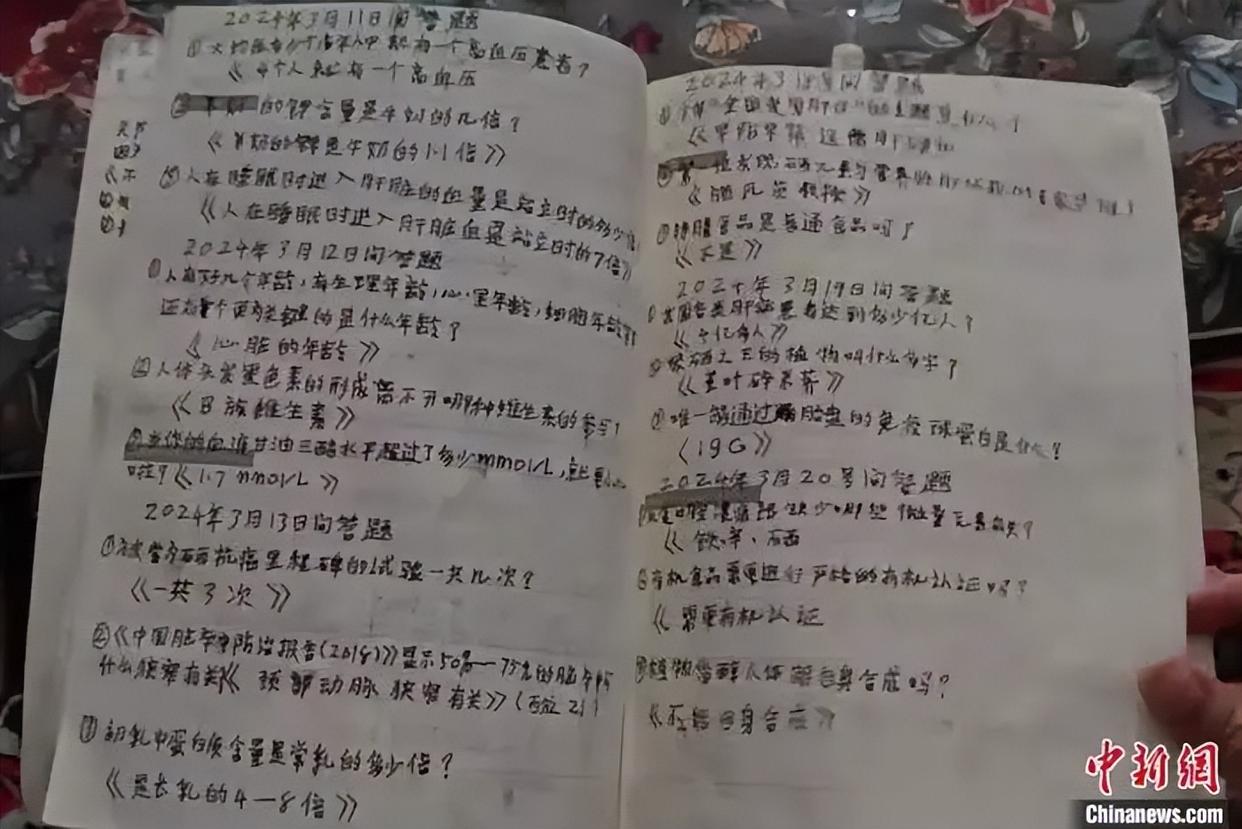 2024年3月11日问答题
①大约每多少个成年人中就有一个高血压患者?
《4个人就有一个高血压
② 的钾含量是牛奶的几倍?
《羊奶的钾是牛奶的1.1倍》
③人在睡眠时进入肝脏的血量是站立时的多少倍
《人在睡眠时进入肝脏血是站立时的7倍》
2024年3月12日问答题
①人有好几个年龄,有生理年龄,心里年龄,细胞年龄
还有个更关键的是什么年龄?
《心脏的年龄》
②人体头发黑色素的形成离不开哪种维生素的参与?
《B族维生素》
③当你的血液甘油三酯水平超过了多少mmol/L,就要
啦?《1.7mmol/L》
2024年3月13日问答题
①被誉为硒抗癌里程碑的试验一共几次?
《一共3次》
②《中国脑卒中防治报告(2018)》显示50%—75%的脑卒中与
什么狭窄有关《颈部动脉狭窄有关》
③初乳中蛋白质含量是常乳的多少倍?
《是长乳的4—8倍》
2024年3月 问答题
全国爱国肝日 的主题是什么?
《早防早筛远离肝
发现硒元素与营养
《施瓦茨教授》
③特膳食品是普通食品吗?
《不是》
2024年3月19日问答题
①我国各类肝病患者达到多少亿人?
亿多人》
硒之王的植物叫什么名字?
《堇叶碎米荠》
③唯一能通过胎盘的免疫球蛋白是什么?
《19G》
2024年3月20号问答题
口腔溃疡跟缺少哪些微量元素有关?
《铁、锌、硒
②有机食品需要进行严格的有机认证吗?
《需要有机认证
③植物甾醇人体能自身合成吗?
自身合成》
中新網
Chinanews.com